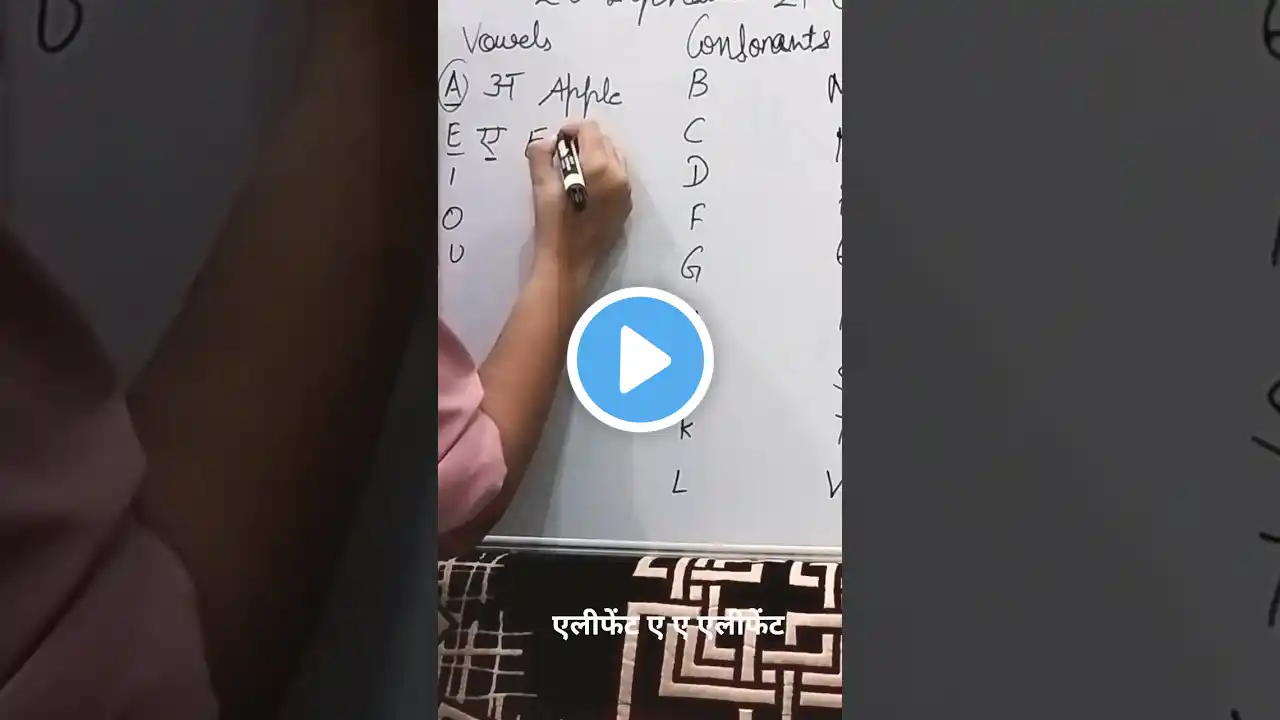 Vowels
Consonants
A अ Apple
E ए E
I
O
U
B
C
D
F
G
K
L
V
एलीफेंट ए ए एलीफेंट